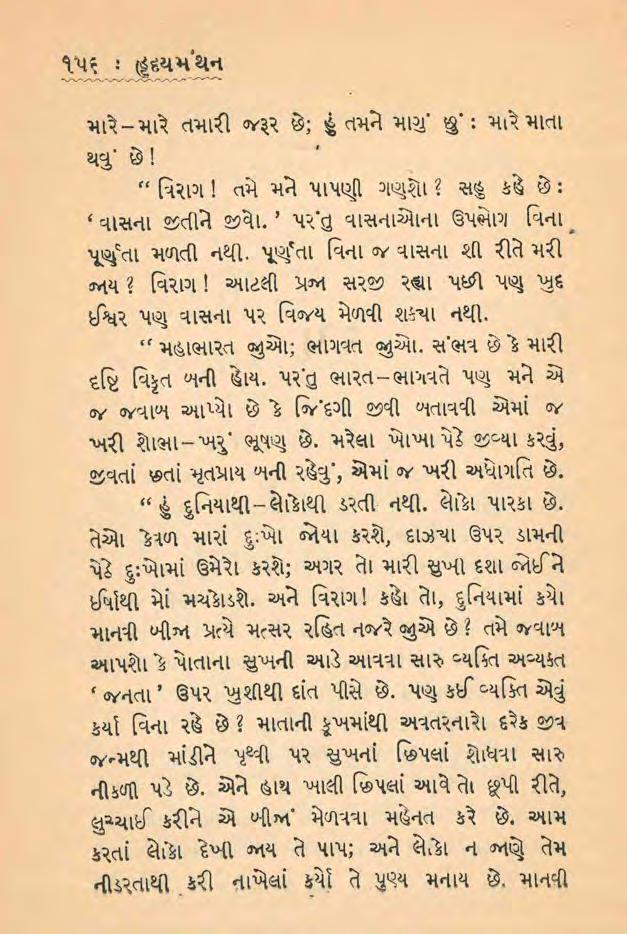 ૧૫૬ : હૃદયમંથન
મારે–મારે તમારી જરૂર છે; હું તમને માગું છું : મારે માતા
થવું છે !
“ વિરાગ ! તમે મને પાપણી ગણશો ? સહુ કહે છે :
‘ વાસના જીતીને જીવો. ’ પરંતુ વાસનાઓના ઉપભોગ વિના
પૂર્ણતા મળતી નથી. પૂર્ણતા વિના જ વાસના શી રીતે મરી
જાય ? વિરાગ ! આટલી પ્રજા સરજી રહ્યા પછી પણ ખુદ
ઈશ્વર પણ વાસના પર વિજય મેળવી શકયા નથી.
“ મહાભારત જુઓ; ભાગવત જુઓ. સંભવ છે કે મારી
દૃષ્ટિ વિકૃત બની હોય. પરંતુ ભારત–ભાગવતે પણ મને એ
જ જવાબ આપ્યો છે કે જિંદગી જીવી બતાવવી એમાં જ
ખરી શોભા–ખરું ભૂષણ છે. મરેલા ખોખા પેઠે જીવ્યા કરવું,
જીવતાં છતાં મૃતપ્રાય બની રહેવું, એમાં જ ખરી અધોગતિ છે.
“ હું દુનિયાથી–લોકોથી ડરતી નથી. લોકો પારકા છે.
તેઓ કેવળ મારાં દુઃખો જોયા કરશે, દાઝયા ઉપર ડામની
પેઠે દુઃખોમાં ઉમેરો કરશે; અગર તો મારી સુખી દશા જોઈને
ઈર્ષાથી મોં મચકોડશે. અને વિરાગ ! કહો તો, દુનિયામાં કયો
માનવી બીજા પ્રત્યે મત્સર રહિત નજરે જુએ છે ? તમે જવાબ
આપશો કે પોતાના સુખની આડે આવવા સારુ વ્યક્તિ અવ્યક્ત
‘ જનતા ’ ઉપર ખુશીથી દાંત પીસે છે. પણ કઈ વ્યક્તિ એવું
કર્યા વિના રહે છે ? માતાની કૂખમાંથી અવતરનારો દરેક જીવ
જન્મથી માંડીને પૃથ્વી પર સુખનાં છિપલાં શોધવા સારુ
નીકળી પડે છે. એને હાથ ખાલી છિપલાં આવે તો છૂપી રીતે,
લુચ્ચાઈ કરીને એ બીજાં મેળવવા મહેનત કરે છે. આમ
કરતાં લોકો દેખી જાય તે પાપ; અને લોકો ન જાણે તેમ
નીડરતાથી કરી નાખેલાં કર્યો તે પુણ્ય મનાય છે. માનવી